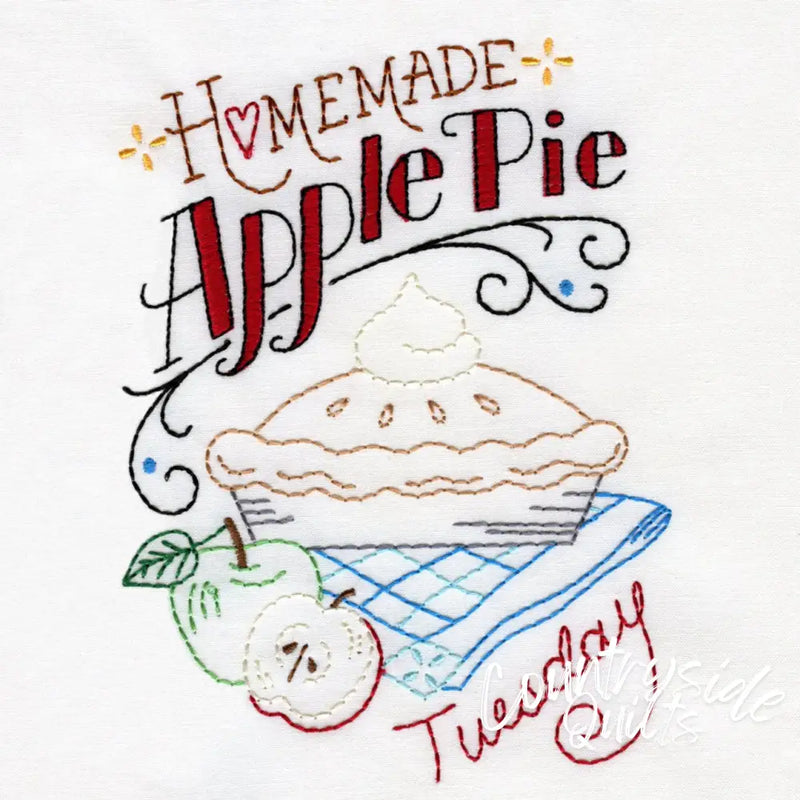 HOMEMADE
Apple Pie
Tuesday
Countryside
Quilts